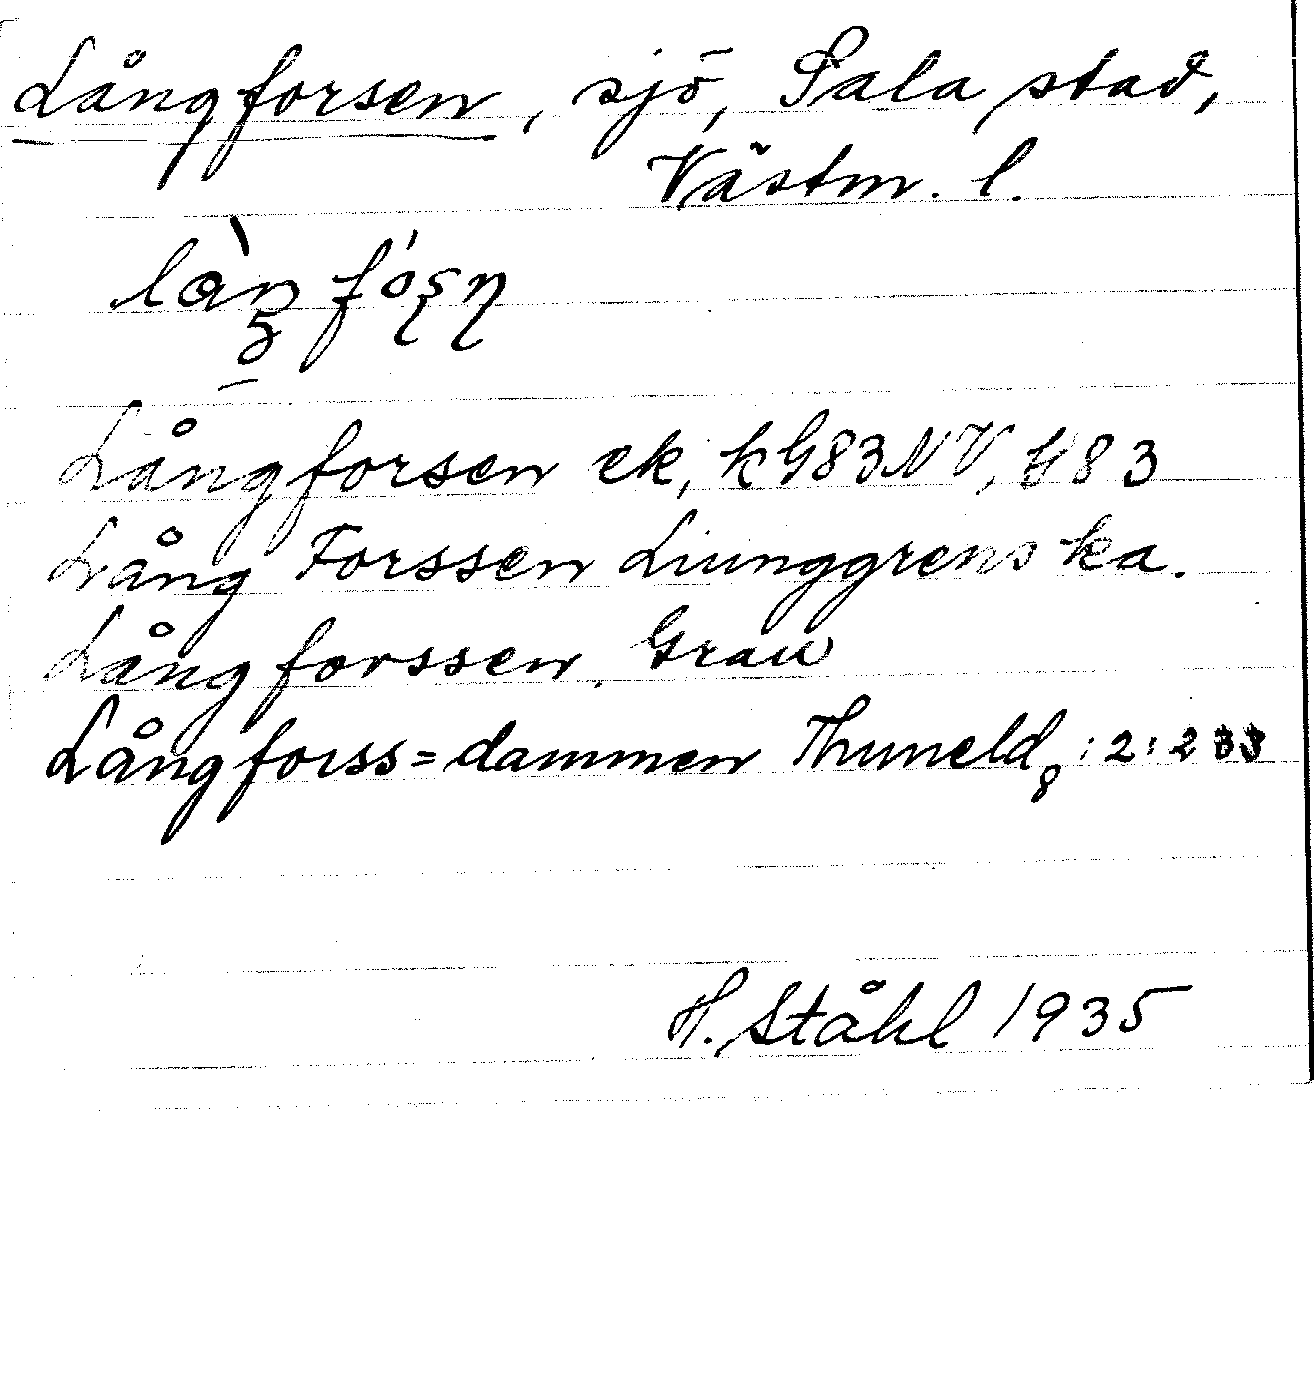 Långforsen, sjö, Sala stad,
Västm. l.
Långforsen ek, kG83NV, G83
Lång Forssen Liunggrens ka.
Långforssen, Grau
Långforss=dammen Thuneld8:2:233
H. Ståhl 1935